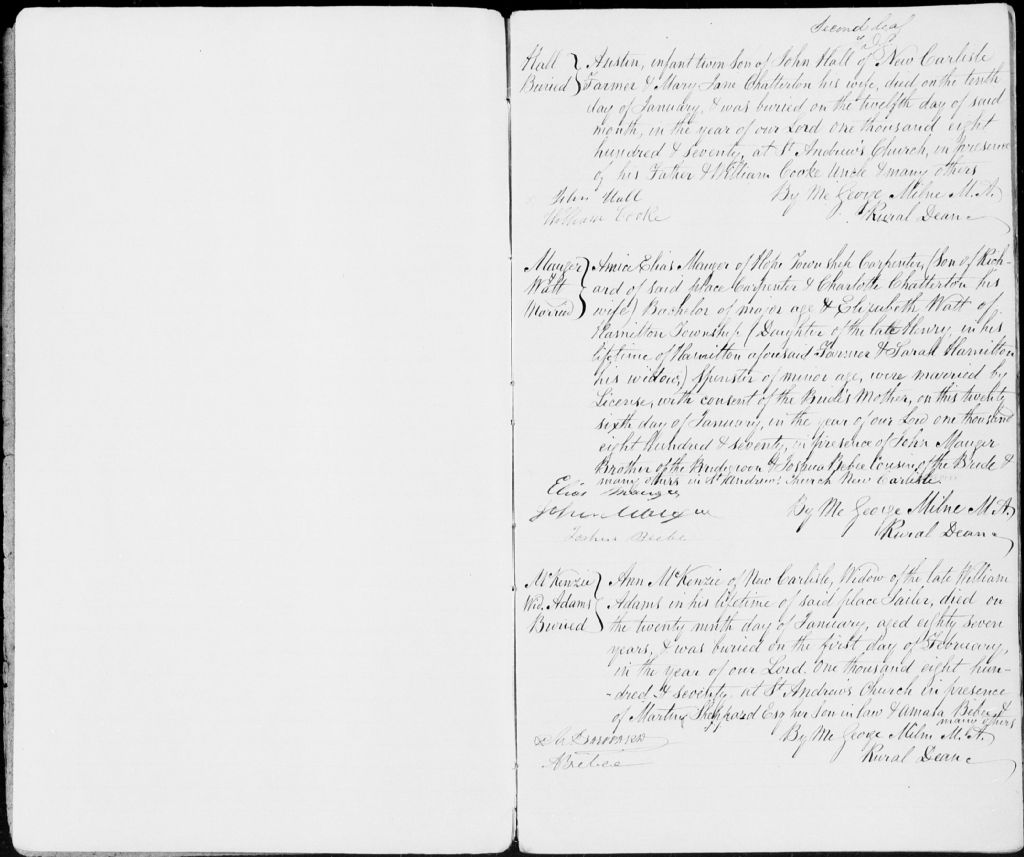 Second leaf
Hall Austin, infant twin Son of John Hall of New Carlisle
Buried Farmer & Mary Jane Chatterton his wife, died on the tenth
day of January, & was buried on the twelfth day of said
month, in the year of our Lord one thousand eight
hundred & seventy, at St Andrew's Church, in presence
of his Father & William Cooke Uncle & many others
John Hall By Me George Milne M.A.
William Cooke Rural Dean
Mauger Amice Elias Mauger of Hope Township Carpenter, (Son of Rich-
& Watt ard of said place Carpenter & Charlotte Chatterton his
Married wife) Bachelor of major age & Elizabeth Watt of
Hamilton Township (Daughter of the late Henry, in his
lifetime of Hamilton aforesaid Farmer & Sarah Hamilton
his widow,) Spinster of minor age, were married by
License, with consent of the Bride's Mother, on this twenty
sixth day of January, in the year of our Lord one thousand
eight Hundred & seventy, in presence of John Mauger
Brother of the Bridegroom & Joshua Bebee Cousin of the Bride &
many others in St Andrew's Church New Carlisle.
Elias Mauger
John Mauger By Me George Milne M.A.
Joshua Beebe Rural Dean
McKenzie Ann McKenzie of New Carlisle, Widow of the late William
Wid. Adams Adams in his lifetime of said place Sailor, died on
Buried the twenty ninth day of January, aged eighty seven
years, & was buried on the first day of February,
in the year of our Lord one thousand eight hun-
-dred & seventy at St Andrew's Church in presence
of Martin Sheppard Esq her Son in law & Amasa Bebee &
many others
By Me George Milne M.A.
A Bebee
Rural Dean